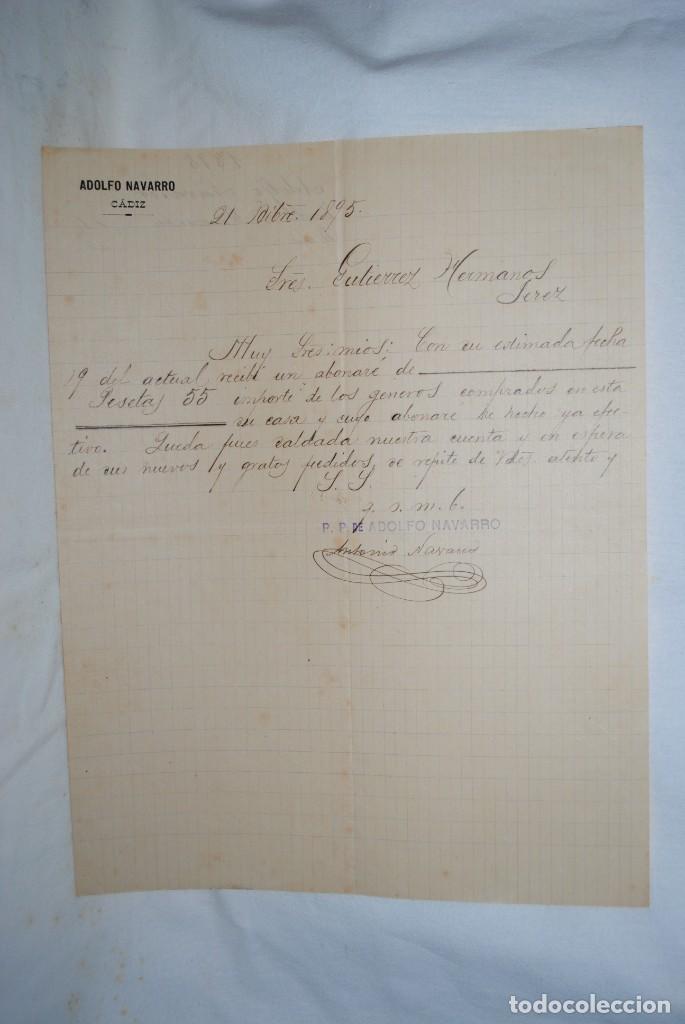 ADOLFO NAVARRO
CÁDIZ
21 Dibre. 1895.
Sres. Gutierrez Hermanos
Jerez
Muy Sres. mios: Con su estimada fecha
19 del actual, recibí un abonaré de
Pesetas 55 importe de los generos comprados en esta
su casa y cuyo abonaré he hecho ya efec-
tivo. Queda pues saldada nuestra cuenta y en espera
de sus nuevos y gratos pedidos, se repite de Vdes. atento y
S. S.
q. s. m. b.
P. P. DE ADOLFO NAVARRO
Antonio Navarro
todocoleccion